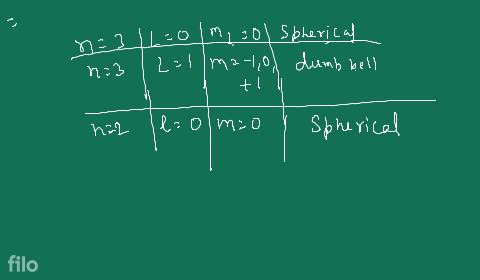 =
n=3 L=0 m_l=0 Spherical
n=3 L=1 m=-1,0, dumb bell
+1
n=2 l=0 m=0 Spherical
filo